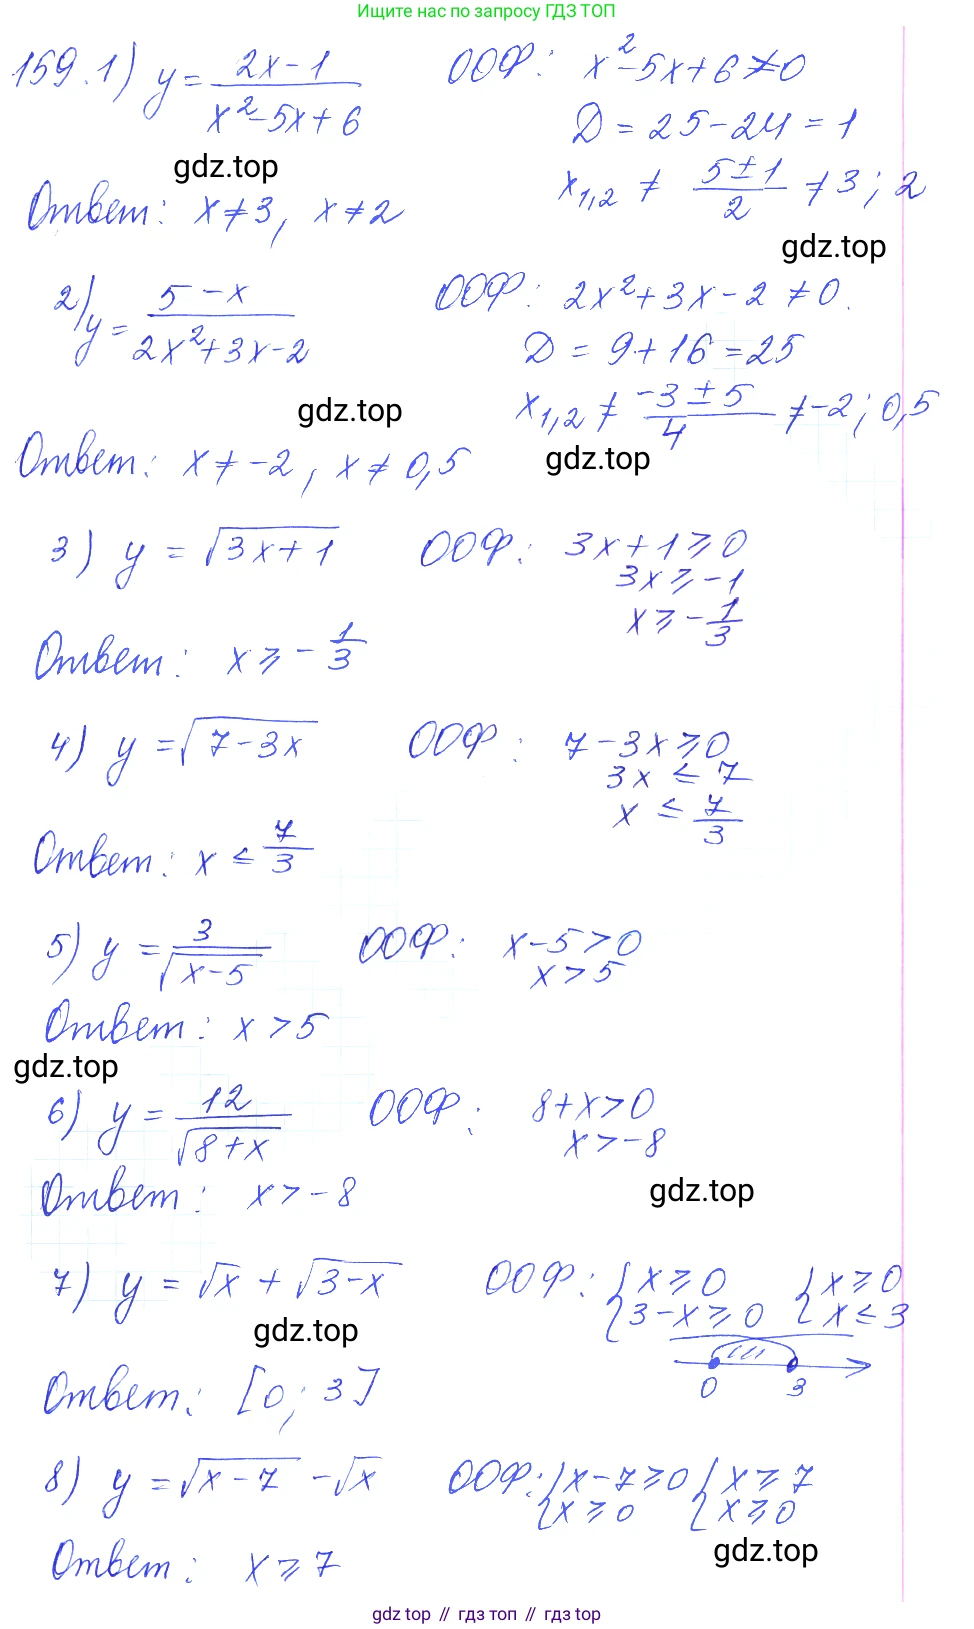 Ищите нас по запросу ГДЗ ТОП
159.1) y = (2x-1)/(x²-5x+6) ООФ: x²-5x+6≠0
D = 25-24 = 1
gdz.top
x₁,₂ ≠ (5±1)/2 ≠ 3; 2
Ответ: x≠3, x≠2
gdz.top
2) y = (5-x)/(2x²+3x-2) ООФ: 2x²+3x-2≠0.
D = 9+16=25
gdz.top
x₁,₂ ≠ (-3±5)/4 ≠ -2; 0,5
Ответ: x≠-2, x≠0,5
gdz.top
3) y = √(3x+1) ООФ: 3x+1⩾0
3x⩾-1
x⩾-1/3
Ответ: x⩾-1/3
4) y = √(7-3x) ООФ: 7-3x⩾0
3x ≤ 7
x ≤ 7/3
Ответ: x ≤ 7/3
5) y = 3/√(x-5) ООФ: x-5>0
x>5
Ответ: x>5
gdz.top
6) y = 12/√(8+x) ООФ: 8+x>0
x>-8
Ответ: x>-8
gdz.top
7) y = √x + √(3-x) ООФ: { x⩾0 { x⩾0
{ 3-x⩾0 { x≤3
gdz.top
0 3
Ответ: [0; 3]
8) y = √(x-7) - √x ООФ: { x-7⩾0 { x⩾7
{ x⩾0 { x⩾0
gdz.top
Ответ: x⩾7
gdz top // гдз топ // гдз top